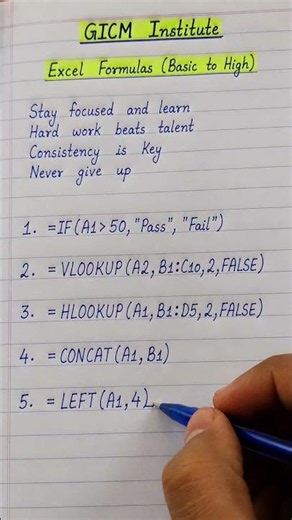 GICM Institute
Excel Formulas (Basic to High)
Stay focused and learn
Hard work beats talent
Consistency is Key
Never give up
1. =IF(A1>50,"Pass", "Fail")
2. =VLOOKUP(A2,B1:C10,2,FALSE)
3. =HLOOKUP(A1,B1:D5,2,FALSE)
4. =CONCAT(A1,B1)
5. =LEFT(A1,4)